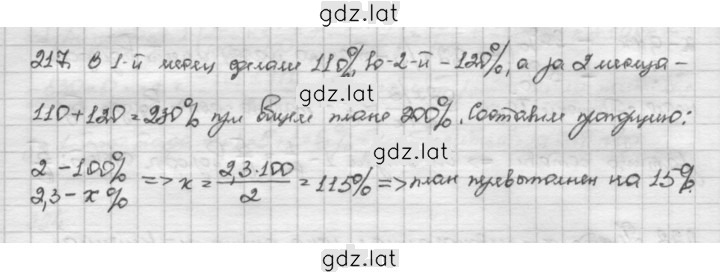 gdz.lat
217. В 1-й месяц сделали 110%, во 2-й - 120%, а за 2 месяца -
gdz.lat
110+120=230% при общем плане 200%. Составим пропорцию:
gdz.lat
2 - 100%
2,3 - x % => x = 2,3·100 / 2 = 115% => план перевыполнен на 15%.
gdz.lat